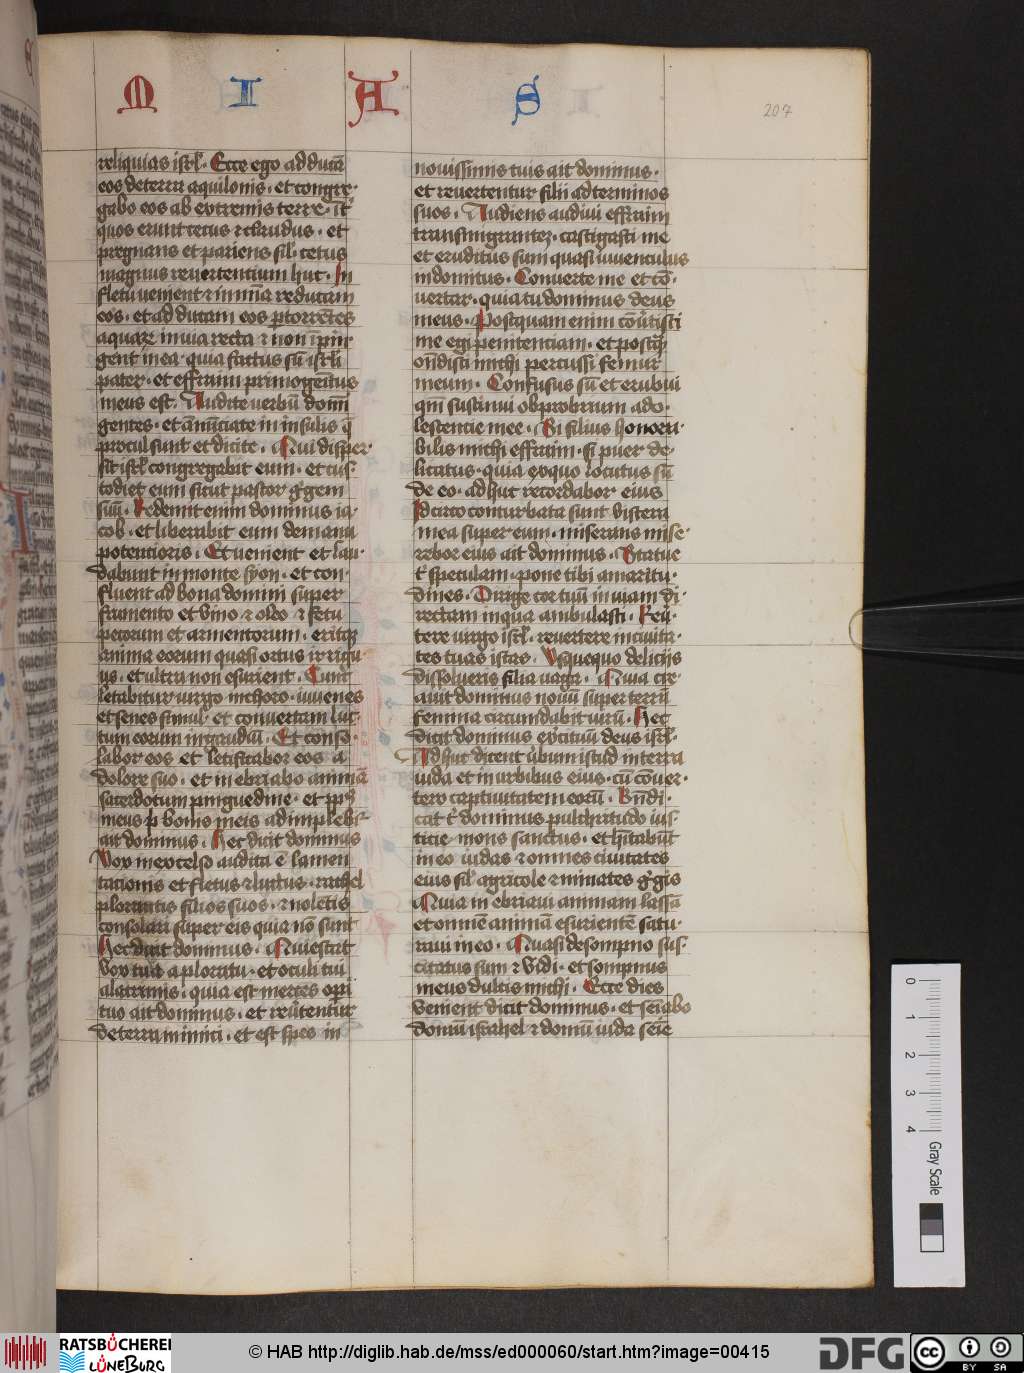 M I A S
207
reliquias isrl̄. Ecce ego adducā
eos deterra aquilonis. et congre
gabo eos ab extremis terre. īt̄
quos erunt cecus ⁊ claudus. et
pregnans et pariens sil̄. cetus
magnus reuertentium huc. In
fletu uenient ⁊ in mīa reducam
eos. et adducam eos ꝑ torrētes
aquarꝫ in uia recta ⁊ non īpin
gent in ea. quia factus sū isrl̄i
pater. et effraim primogenitus
meus est. Audite uerbū domī
gentes. et ānūciate in insulis q̄
procul sunt et dicite. Qui disper
sit isrl̄ congregabit eum. et cus
todiet eum sicut pastor gͥgem
suū. Redemit enim dominus ia
cob. et liberabit eum demanu
potentioris. Et uenient et lau
dabunt in monte syon. et con
fluent ad bona domini super
frumento et vino ⁊ oleo ⁊ fetu
pecorum et armentorum. eritqꝫ
anima eorum quasi ortus irrigu
us. et ultra non esurient. Tunc
letabitur uirgo in choro. iuuenes
et senes simul. et conuertam luc
tum eorum in gaudiū. Et conso
labor eos et letificabor eos a
dolore suo. et inebriabo animā
sacerdotum pinguedine. et ppl̄s
meus ꝑ bonis meis adimplebiť
ait dominus. Hec dicit dominus
Vox in excelso audita ē lamen
tacionis et fletus ⁊ luctus. rachel
plorantis filios suos. ⁊ nolētis
consolari super eis quia nō sunt
Hec dicit dominus. Quiescat
vox tua a ploratu. et oculi tui
a lacrimis. quia est merces oꝑi
tuo ait dominus. et reūtentur
de terra inimici. et est spes in
nouissimis tuis ait dominus.
et reuertentur filii ad terminos
suos. Audiens audiui effraim
transmigrantez. castigasti me
et eruditus sum quasi iuuenculus
indomitus. Conuerte me et cō
uertar. quia tu dominus deus
meus. Postquam enim cōūtisti
me egi penitentiam. et postqͣ
ōndisti michi percussi femur
meum. Confusus sū et erubui
qm̄ sustinui obprobrium ado
lescentie mee. Si filius honora
bilis michi effraim. si puer de
licatus. quia ex quo locutus sū
de eo. adhuc recordabor eius
Idcirco conturbata sunt viscera
mea super eum. miserans mise
rebor eius ait dominus. Statue
t̄ speculam. pone tibi amaritu
dines. Dirige cor tuū in uiam di
rectam in qua ambulasti. Reū
tere uirgo isrl̄. reuertere in ciuita
tes tuas istas. Usquequo deliciis
dissolueris filia uaga. Quia cre
auit dominus nouū super terrā
femina circumdabit uirū. Hec
dicit dominus exercituū deus isrl̄.
Adhuc dicent ūbum istud in terra
iuda et in urbibus eius. cū cōuer
tero captiuitatem eorū. Bn̄di
cat t̄ dominus pulchritudo ius
ticie mons sanctus. et hītabūt
in eo iudas ⁊ omnes ciuitates
eius sil̄ agricole ⁊ minantes gͥgis
Quia inebriaui animam lassā
et omnē animā esurientē satu
raui in eo. Quasi de sompno sus
citatus sum ⁊ vidi. et sompnus
meus dulcis michi. Ecce dies
venient dicit dominus. et seīabo
domū israhel ⁊ domū iuda seīe
0 1 2 3 4
Gray Scale
RATSBÜCHEREI
LÜNEBURG
© HAB http://diglib.hab.de/mss/ed000060/start.htm?image=00415
DFG
cc BY SA